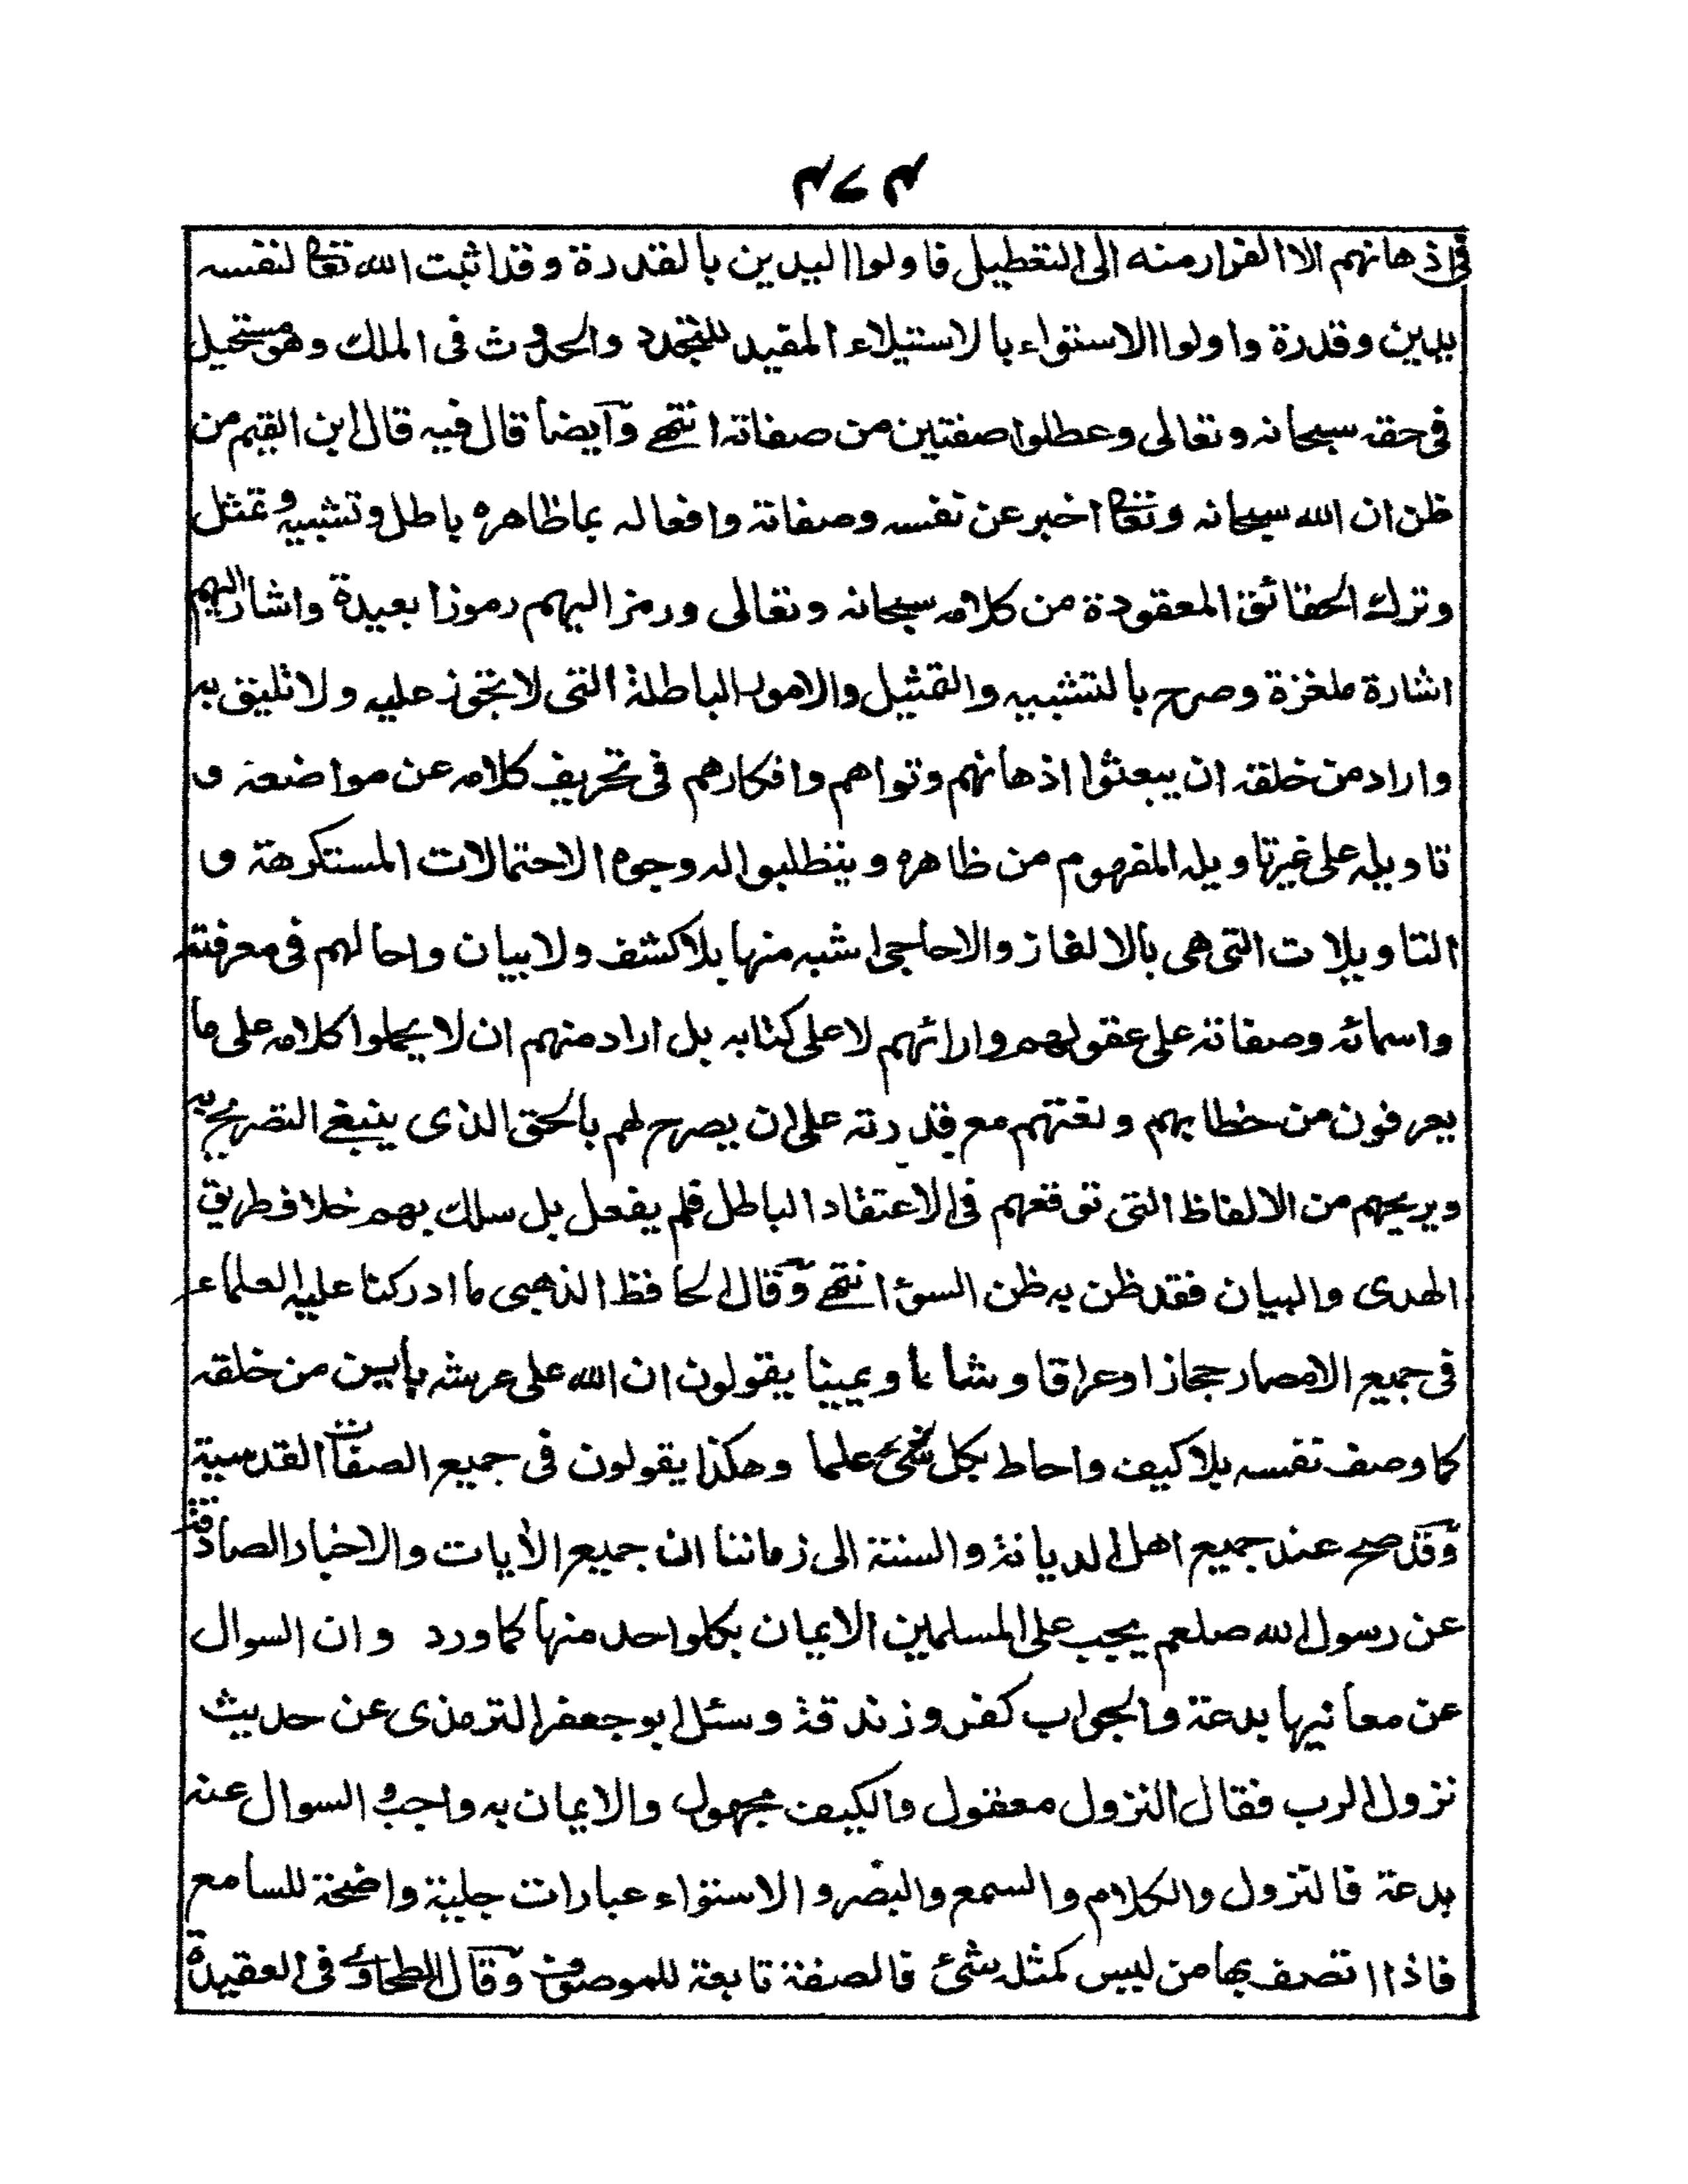 فی اذهانهم الا الفرار منه الی التعطیل فاولوا الیدین بالقدرة وقد اثبت الله تعا لنفسه
یدین وقدرة واولوا الاستواء بالاستیلاء المقید للتجدد والحدوث فی الملك وهو مستحیل
فی حقه سبحانه وتعالی وعطلوا صفتین من صفاته انتهے وآیضا قال فیه قال ابن القیم من
ظن ان الله سبحانه وتعا اخبر عن نفسه وصفاته وافعاله بما ظاهره باطل وتشبیه وتمثل
وترك الحقائق المعقودة من كلامه سبحانه وتعالی ورمز الیهم رموزا بعیدة واشار الیهم
اشارة ملغزة وصرح بالتشبیه والتمثیل والامور الباطلة التی لا تجوز علیه ولا تلیق به
واراد من خلقه ان یبعثوا اذهانهم وتواهم وافكارهم فی تحریف كلامه عن مواضعه و
تاویله علی غیر تاویله المفهوم من ظاهره ویتطلبوا له وجوه الاحتمالات المستكرهة و
التاویلات التی هی بالالغاز والاحاجی اشبه منها بلا كشف ولا بیان واحالهم فی معرفته
واسمائه وصفاته علی عقولهم وارائهم لا علی كتابه بل اراد منهم ان لا یحملوا كلامه علی ما
یعرفون من خطابهم ولغتهم مع قدرته علی ان یصرح لهم بالحق الذی ینبغے التصریح به
ویریحهم من الالفاظ التی توقعهم فی الاعتقاد الباطل فلم یفعل بل سلك بهم خلاف طریق
الهدی والبیان فقد ظن به ظن السوء انتهے وقال الحافظ الذهبی ما ادركنا علیه العلماء
فی جمیع الامصار حجازا وعراقا وشاما ویمینا یقولون ان الله علی عرشه بایین من خلقه
كما وصف نفسه بلا كیف واحاط بكل شیء علما وهكذا یقولون فی جمیع الصفات القدسیة
وقد صح عند جمیع اهل الدیانة والسنة الی زماننا ان جمیع الآیات والاخبار الصادقة
عن رسول الله صلعم یجب علی المسلمین الایمان بكل واحد منها كما ورد وان السوال
عن معانیها بدعة والجواب كفر وزندقة وسئل ابو جعفر الترمذی عن حدیث
نزول الرب فقال النزول معقول والكیف مجهول والایمان به واجب والسوال عنه
بدعة فالنزول والكلام والسمع والبصر والاستواء عبارات جلیة واضحة للسامع
فاذا اتصف بها من لیس كمثله شئ فالصفة تابعة للموصوف وقال الطحاوے فی العقیدة